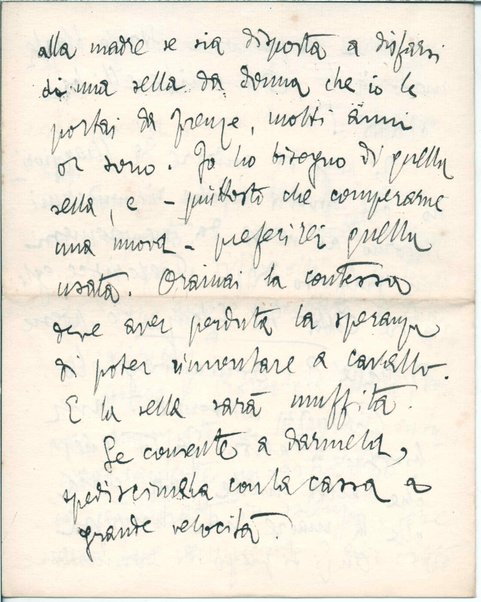 alla madre se sia disposta a disfarsi
di una sella da donna che io le
portai da Firenze, molti anni
or sono. Io ho bisogno di quella
sella, e – piuttosto che comperarne
una nuova – preferirei quella
usata. Oramai la contessa
deve aver perduta la speranza
di poter rimontare a cavallo.
E la sella sarà muffita.
Se consente a darmela,
spediscimela con la cassa a
grande velocità.